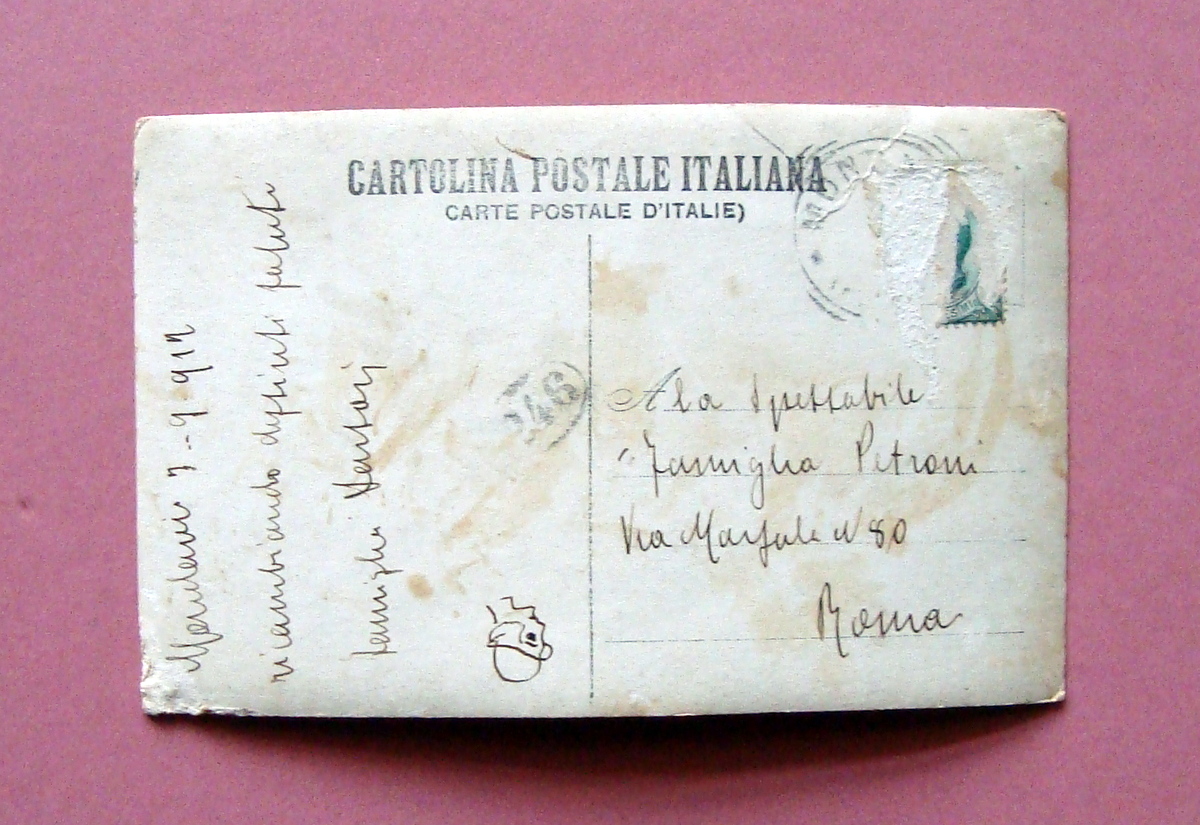 CARTOLINA POSTALE ITALIANA
CARTE POSTALE D'ITALIE)
7-9-917
ricambiando distinti saluti
famiglia Sartori
246
A la Spettabile
Famiglia Petroni
Via Marsala N 80
Roma